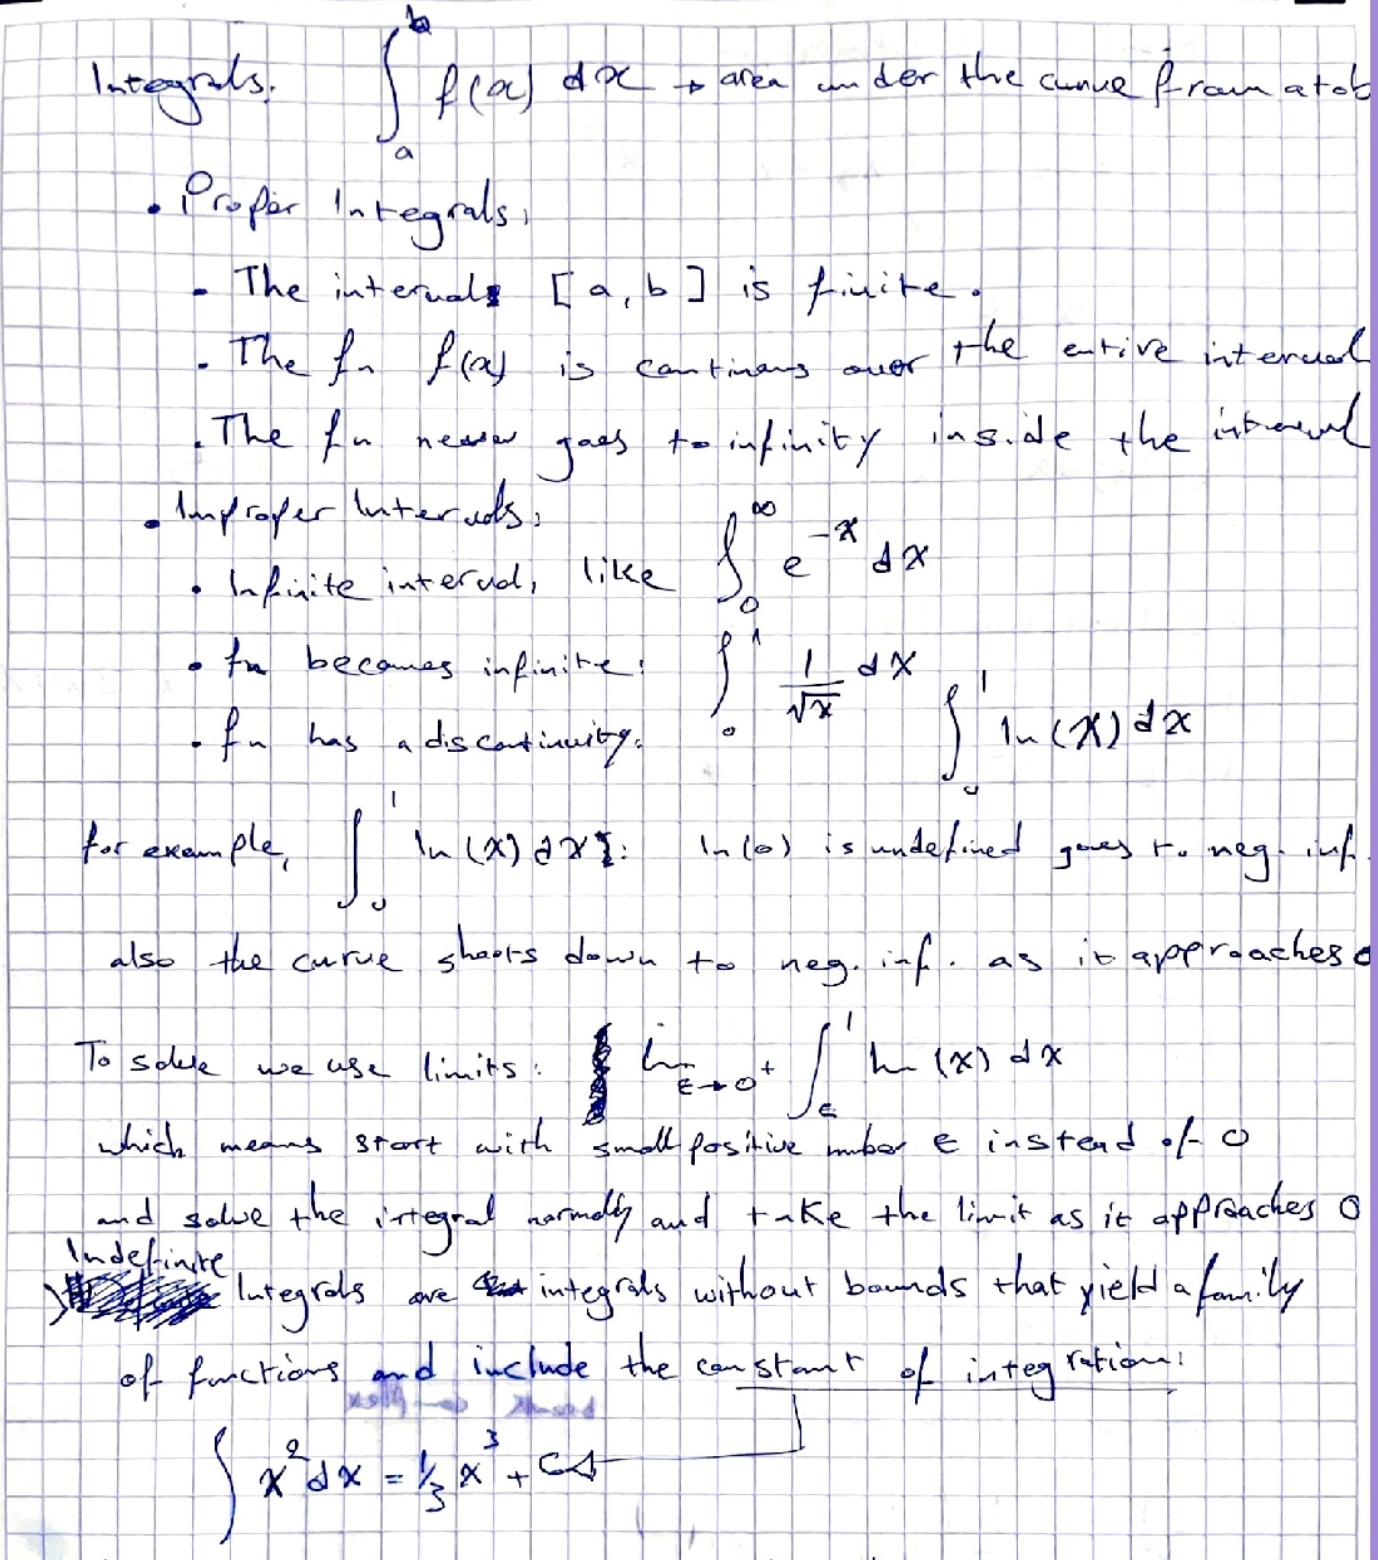 Integrals: ∫_a^b f(x) dx → area under the curve from a to b
• Proper Integrals:
- The interval [a, b] is finite.
• The fn f(x) is continous over the entire interval
• The fn never goes to infinity inside the interval
• Improper Intervals:
• Infinite interval, like ∫_0^∞ e^{-x} dx
• fn becomes infinite: ∫_0^1 1/√x dx
• fn has a discontinuity: ∫_0^1 ln(x) dx
for example, ∫_0^1 ln(x) dx: ln(0) is undefined goes to neg. inf.
also the curve shoots down to neg. inf. as it approaches 0
To solve we use limits: lim_{ϵ→0+} ∫_ϵ^1 ln(x) dx
which means start with small positive number ϵ instead of 0
and solve the integral normally and take the limit as it approaches 0
Indefinite
Integrals are integrals without bounds that yield a family
of functions and include the constant of integration:
∫ x^2 dx = 1/3 x^3 + C